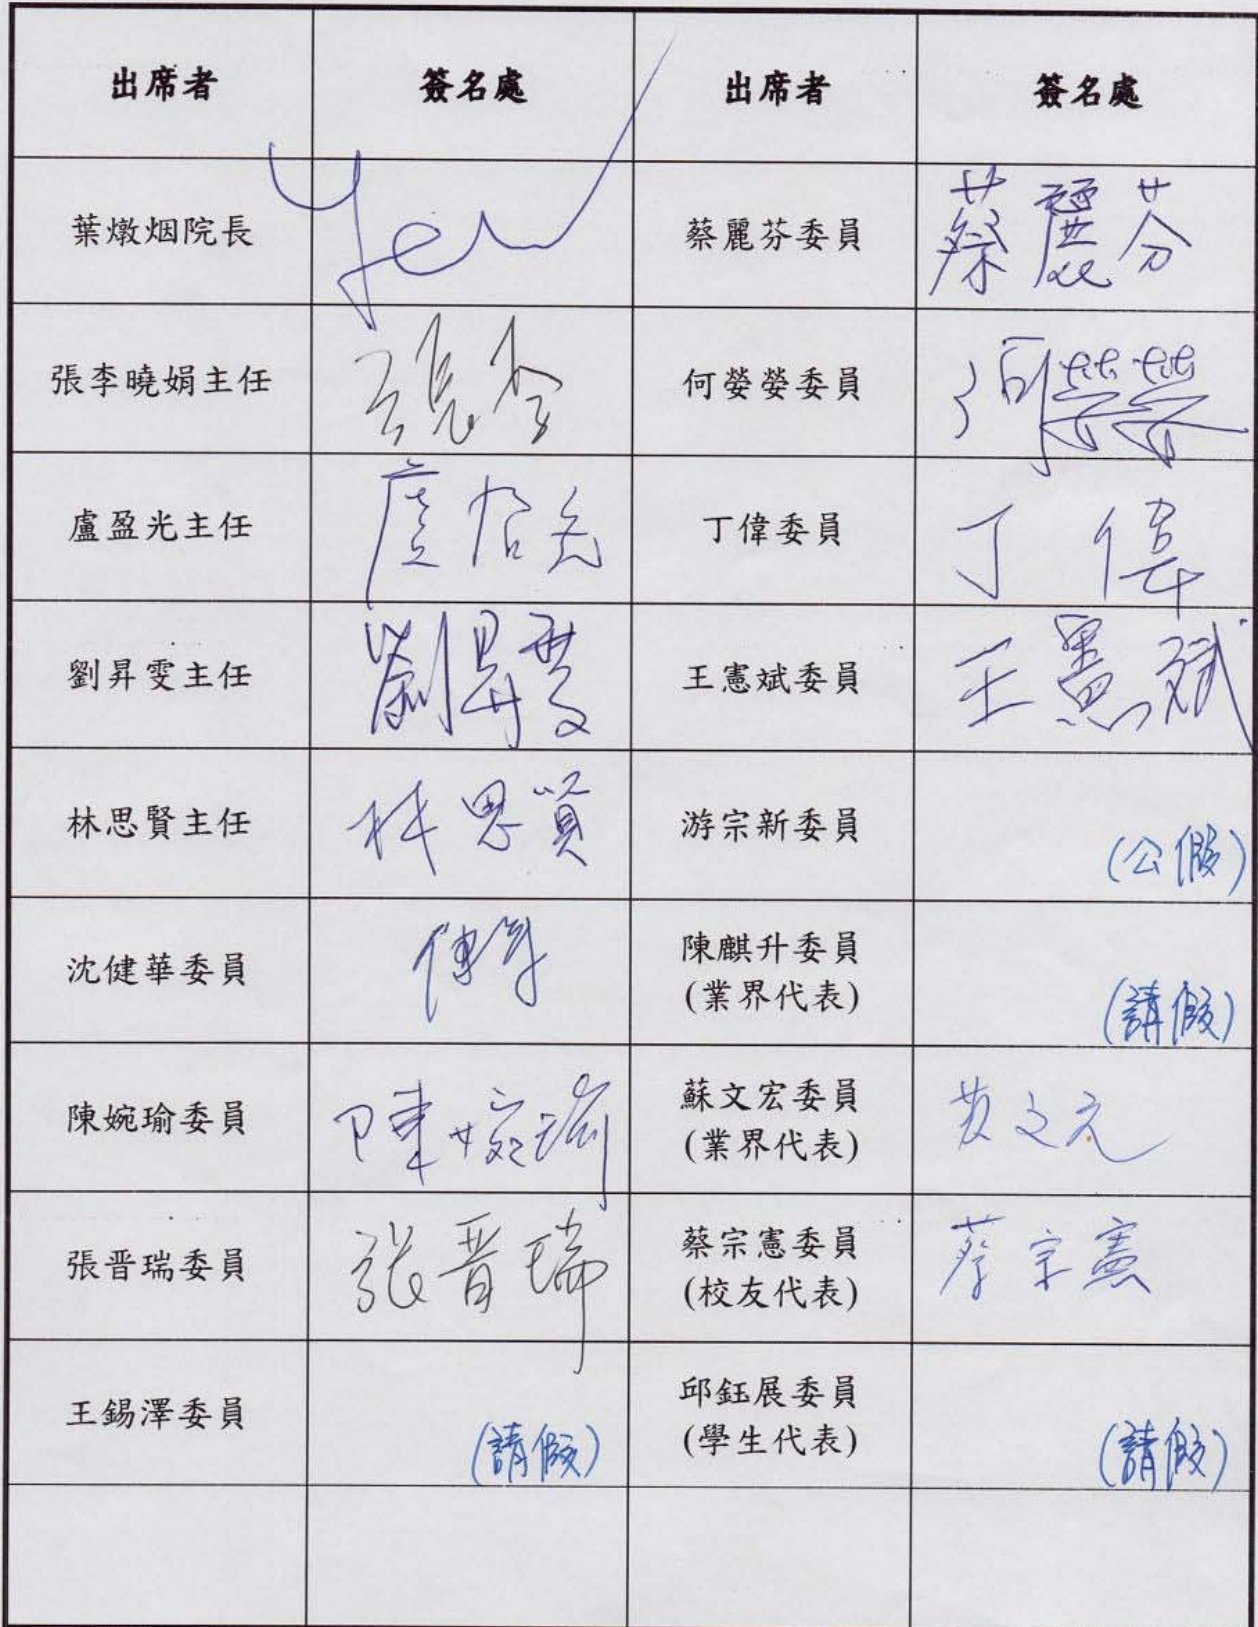 出席者 簽名處 出席者 簽名處
葉燉烟院長 Yeh 蔡麗芬委員 蔡麗芬
張李曉娟主任 張李 何嫈嫈委員 何嫈嫈
盧盈光主任 丁偉委員 丁偉
劉昇雯主任 劉昇雯 王憲斌委員 王憲斌
林思賢主任 林思賢 游宗新委員 (公假)
沈健華委員 陳麒升委員
(業界代表) (請假)
陳婉瑜委員 陳婉瑜 蘇文宏委員
(業界代表)
張晋瑞委員 張晋瑞 蔡宗憲委員 蔡宗憲
(校友代表)
王錫澤委員 (請假) 邱鈺展委員
(學生代表) (請假)